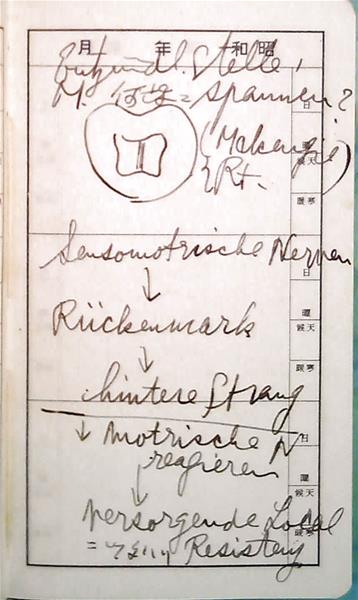 月 年 和昭
Entzündl. Stelle,
M. 何故ニ spannen?
(Makenzie)
Rt.
Sensomotrische Nerven
↓
Rückenmark
↓
hintere Strang
↓ motrische N
reagieren
↓
versorgende Local
= Resistenz
日
曜
天候
寒暖
日
曜
天候
寒暖
日
曜
天候
寒暖